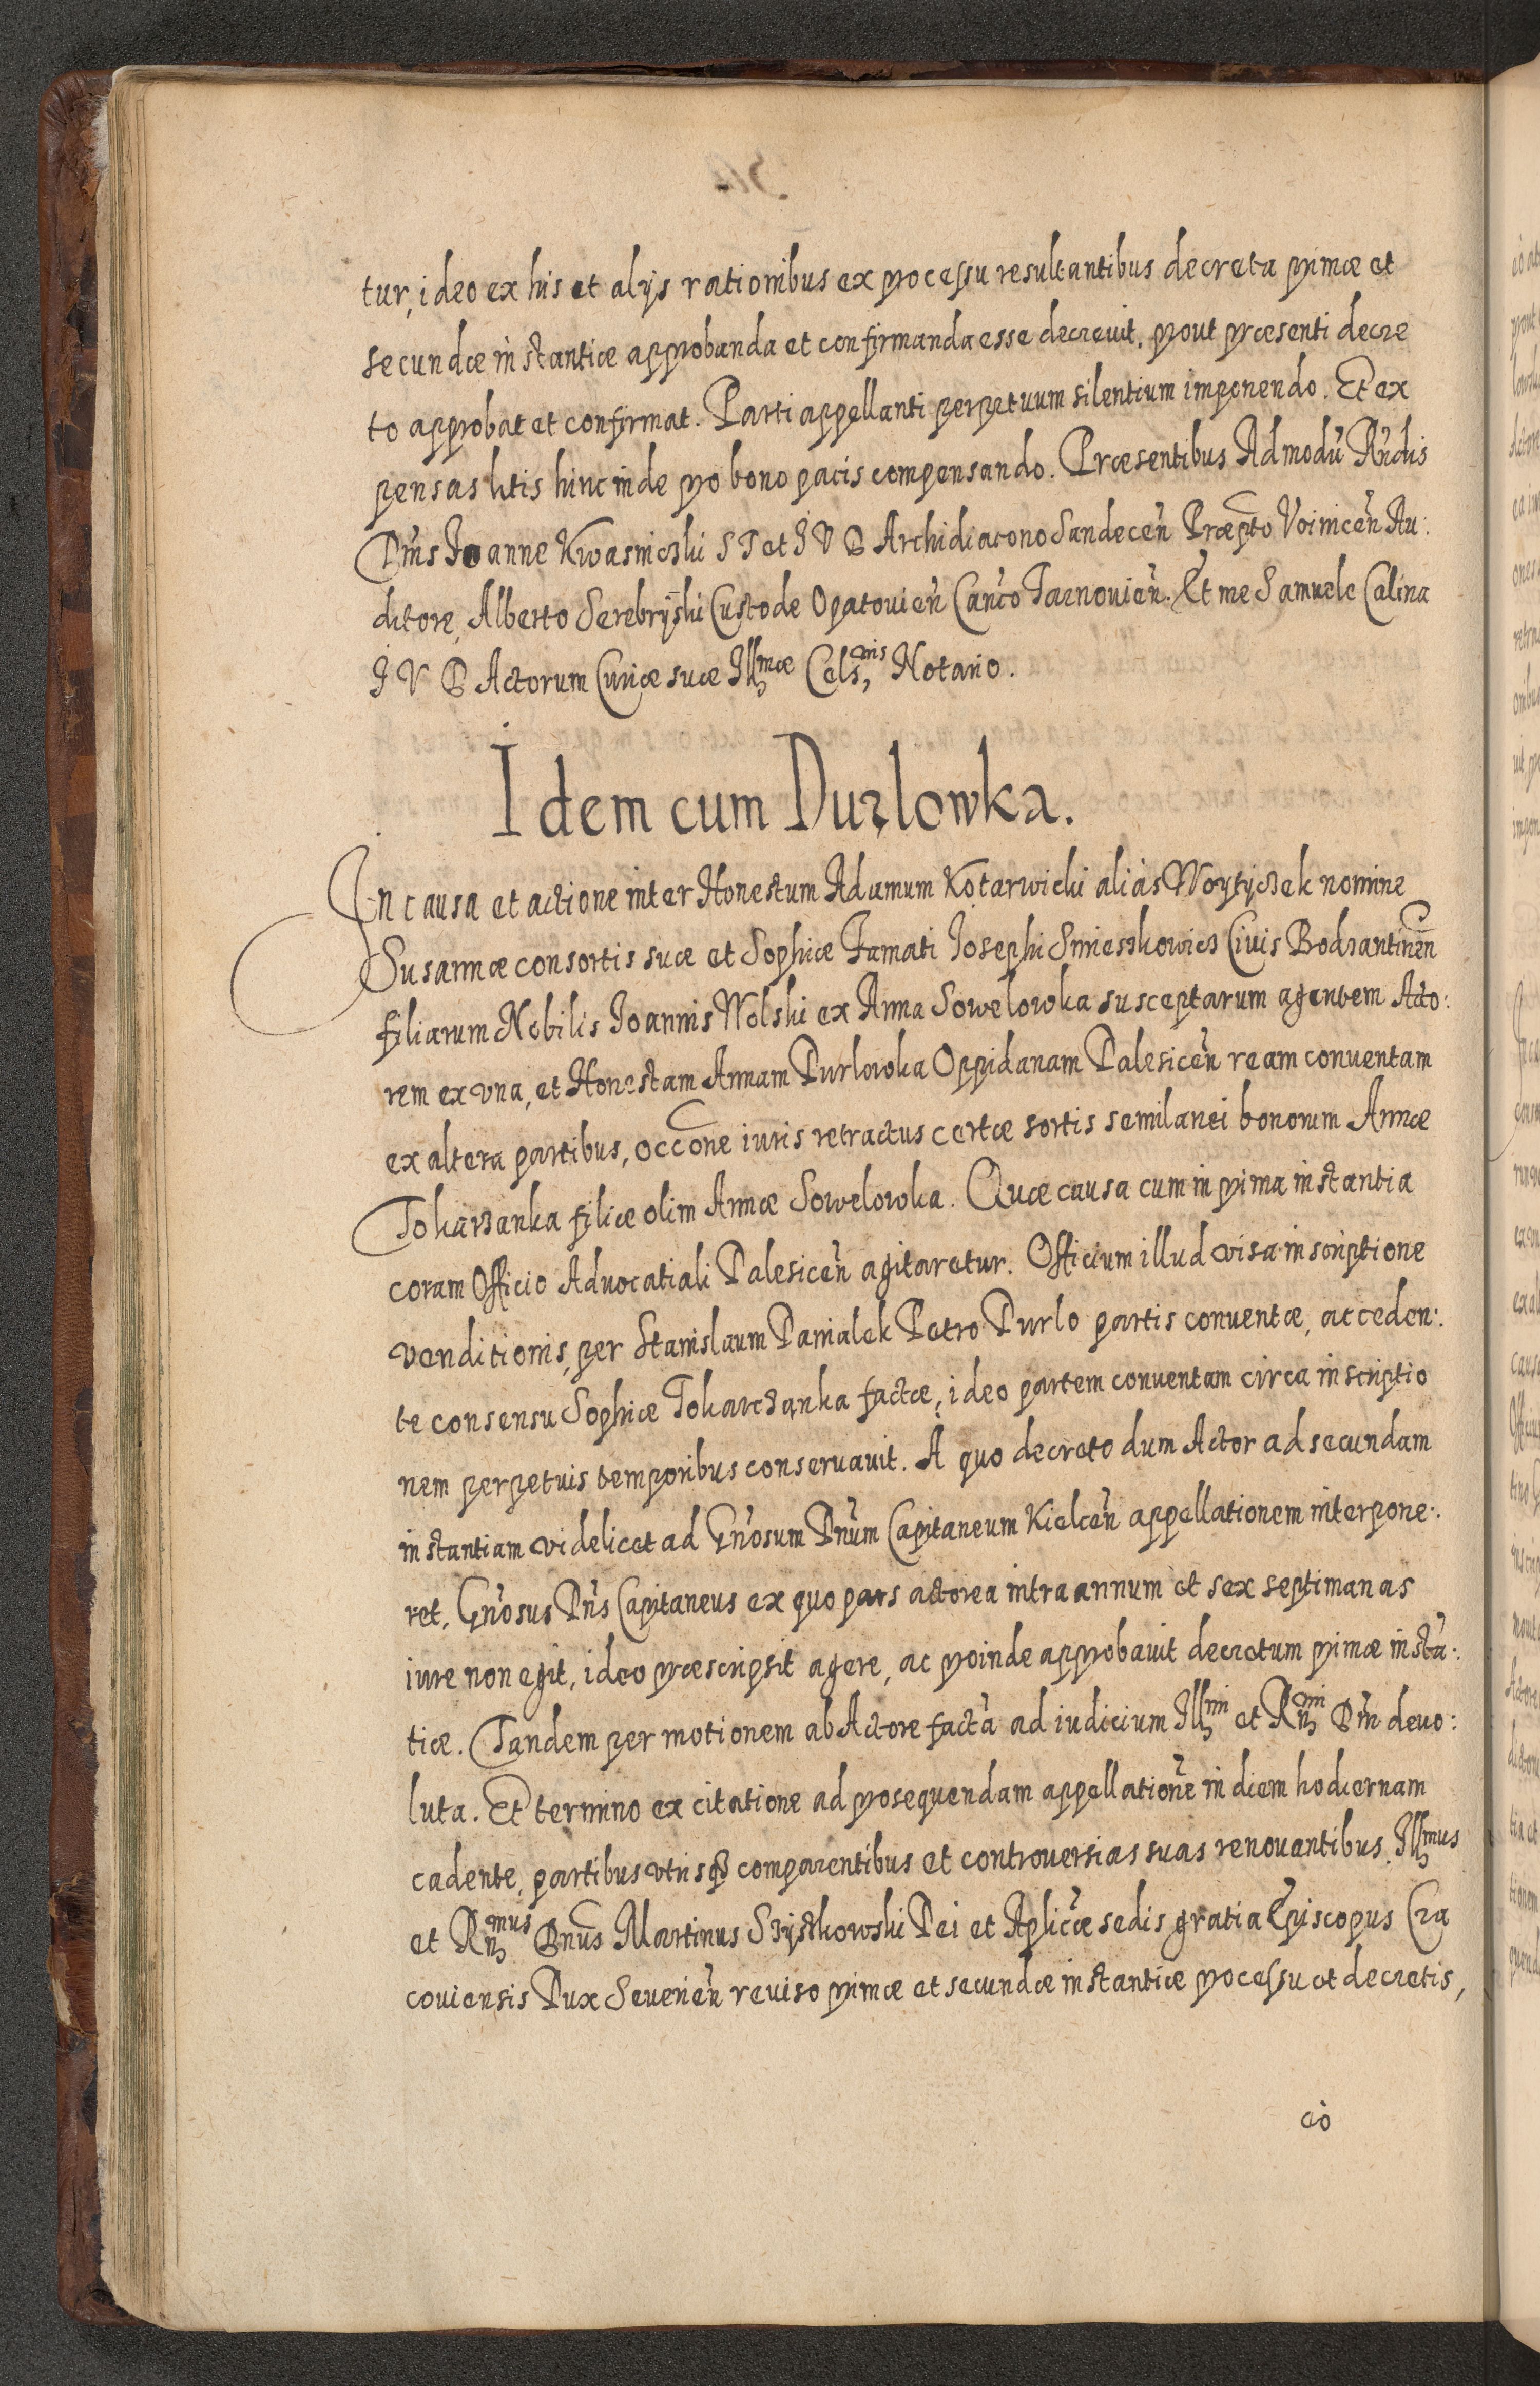 tur, ideo ex his et alijs rationibus ex processu resultantibus decreta primæ et
secundæ instantiæ approbanda et confirmanda esse decreuit, prout præsenti decre
to approbat et confirmat. Parti appellanti perpetuum silentium imponendo. Et ex
pensas litis hinc inde pro bono pacis compensando. Præsentibus Admodũ Rñdis
Dñis Joanne Kwasnicski S T et J V D Archidiacono Sandeceñ Præpto Voiniceñ Au:
ditore, Alberto Serebryski Custode Opatouieñ Canco Tarnouieñ. Et me Samuele Calina
J V D Actorum Curiæ suæ Illmæ Celsnis Notario.
Idem cum Durlowka.
In causa et actione inter Honestum Adamum Kotarwicki aliàs Woytyczek nomine
Susannæ consortis suæ et Sophiæ Famati Josephi Smieszkowicz Ciuis Bodzantineñ
filiarum Nobilis Joannis Wolski ex Anna Sowelowka susceptarum agentem Acto:
rem ex vna, et Honestam Annam Durlowka Oppidanam Daleziceñ ream conuentam
ex altera partibus, occõne iuris retractus certæ sortis semilanei bonorum Annæ
Tokarzanka filiæ olim Annæ Sowelowka. Quæ causa cum in prima instantia
coram Officio Aduocatiali Daleziceñ agitaretur. Officium illud visa inscriptione
venditionis, per Stanislaum Danialek Petro Durlo partis conuentæ, acceden:
te consensu Sophiæ Tokarczanka factæ, ideo partem conuentam circa inscriptio
nem perpetuis temporibus conseruauit. A quo decreto dum Actor ad secundam
instantiam videlicet ad Gñosum Dñum Capitaneum Kielceñ appellationem interpone:
ret. Gñosus Dñs Capitaneus ex quo pars actorea intra annum et sex septimanas
iure non egit, ideo præscripsit agere, ac proinde approbauit decretum primæ instã:
tiæ. Tandem per motionem ab Actore factã ad iudicium Illmi et Rñmi Dñi deuo:
luta. Et termino ex citatione ad prosequendam appellationẽ in diem hodiernam
cadente, partibus vtrisq comparentibus et controuersias suas renouantibus. Illmus
et Rñmus Dnus Martinus Szyszkowski Dei et Aplicæ sedis gratia Episcopus Cra
couiensis Dux Seuerieñ reuiso primæ et secundæ instantiæ processu et decretis,
eò